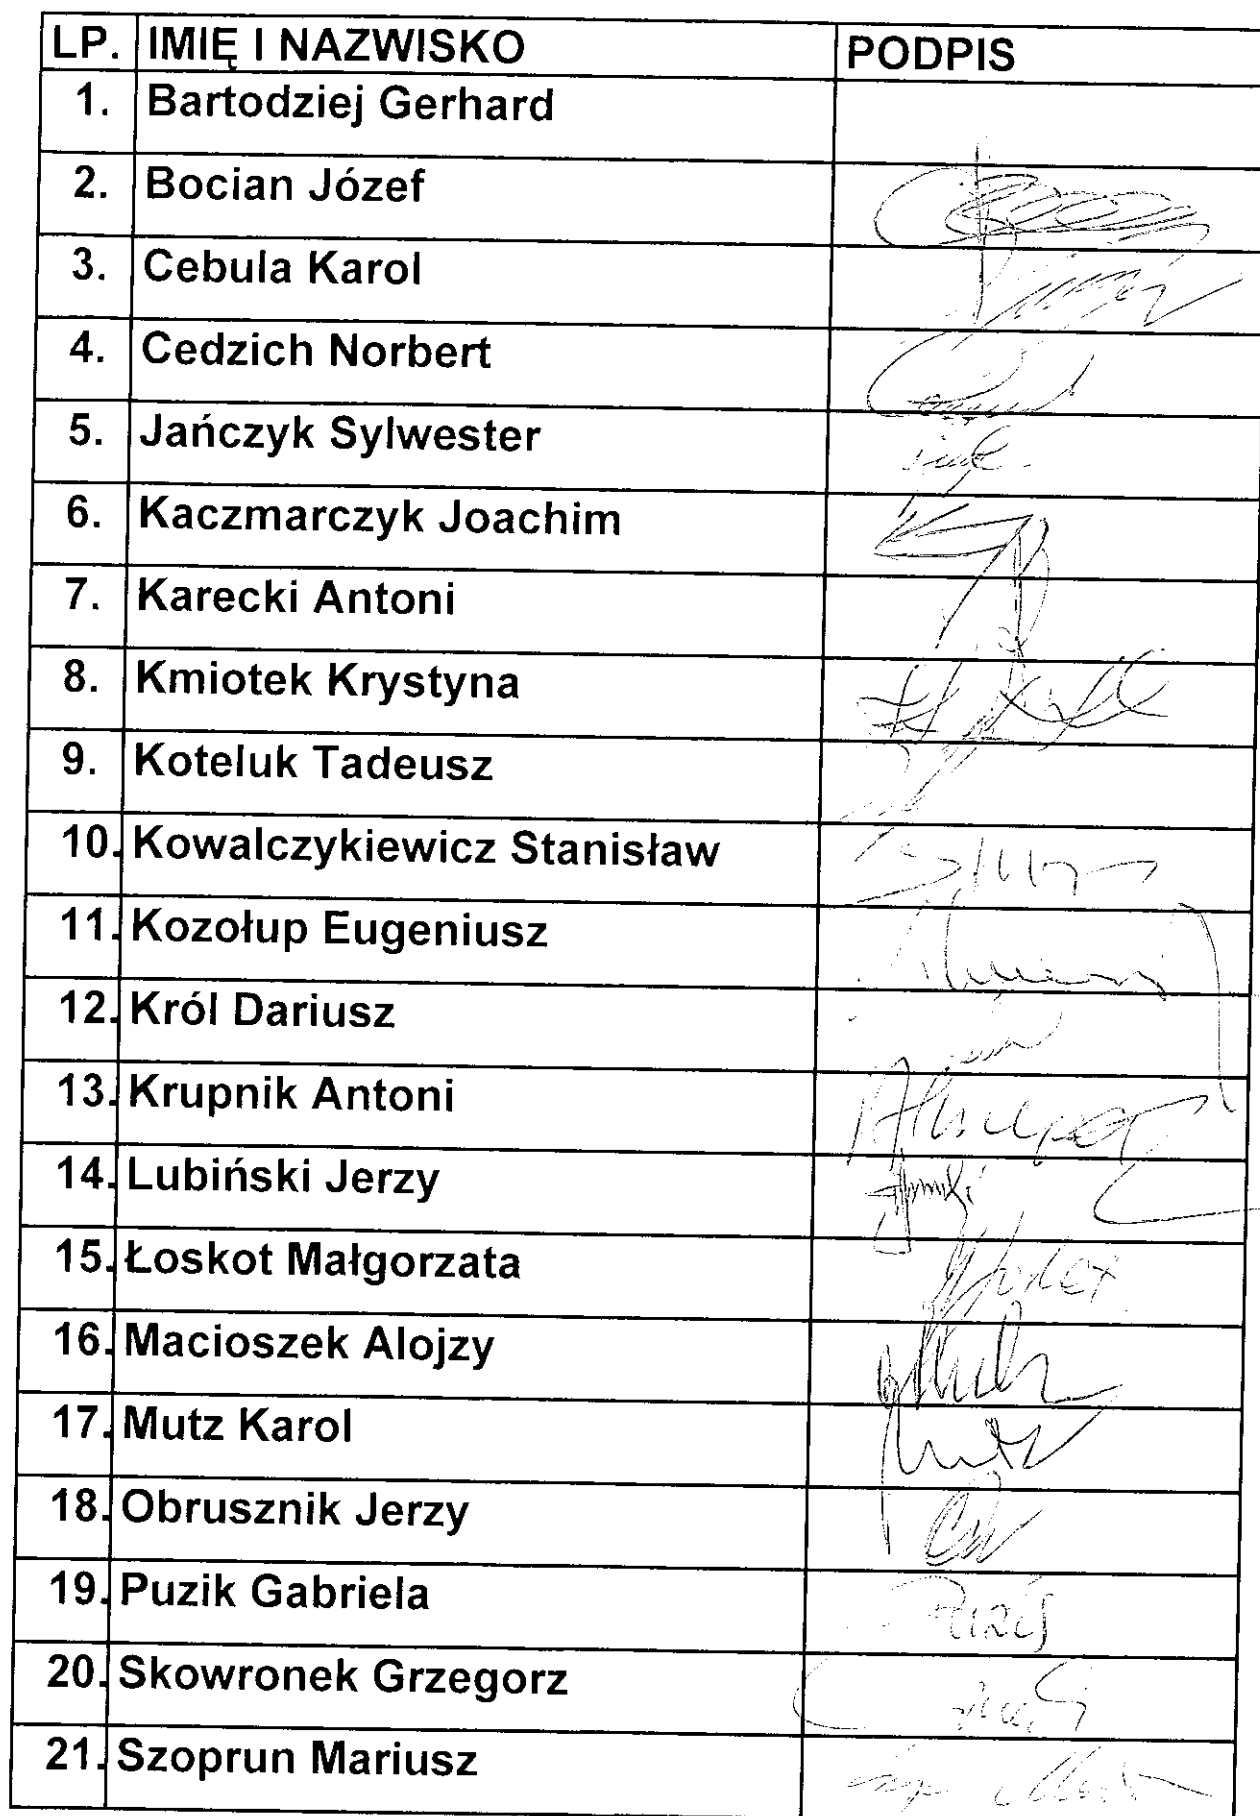 LP. IMIĘ I NAZWISKO PODPIS
1. Bartodziej Gerhard
2. Bocian Józef
3. Cebula Karol
4. Cedzich Norbert
5. Jańczyk Sylwester
6. Kaczmarczyk Joachim
7. Karecki Antoni
8. Kmiotek Krystyna
9. Koteluk Tadeusz
10. Kowalczykiewicz Stanisław
11. Kozołup Eugeniusz
12. Król Dariusz
13. Krupnik Antoni
14. Lubiński Jerzy
15. Łoskot Małgorzata
16. Macioszek Alojzy
17. Mutz Karol
18. Obrusznik Jerzy
19. Puzik Gabriela
20. Skowronek Grzegorz
21. Szoprun Mariusz